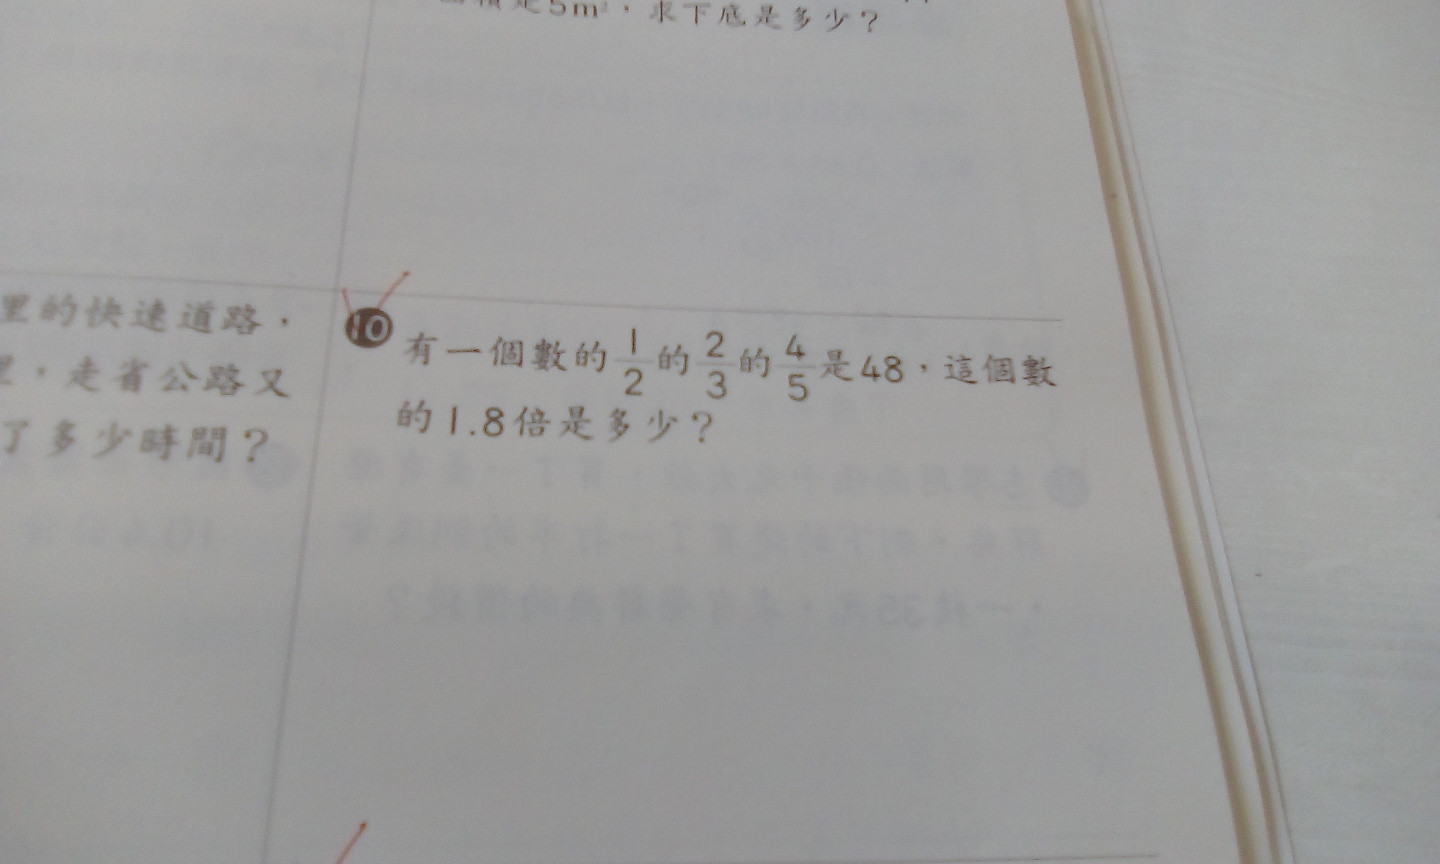 積是5m²，求下底是多少？
里的快速道路，
里，走省公路又
了多少時間？
10 有一個數的1/2的2/3的4/5是48，這個數
的1.8倍是多少？